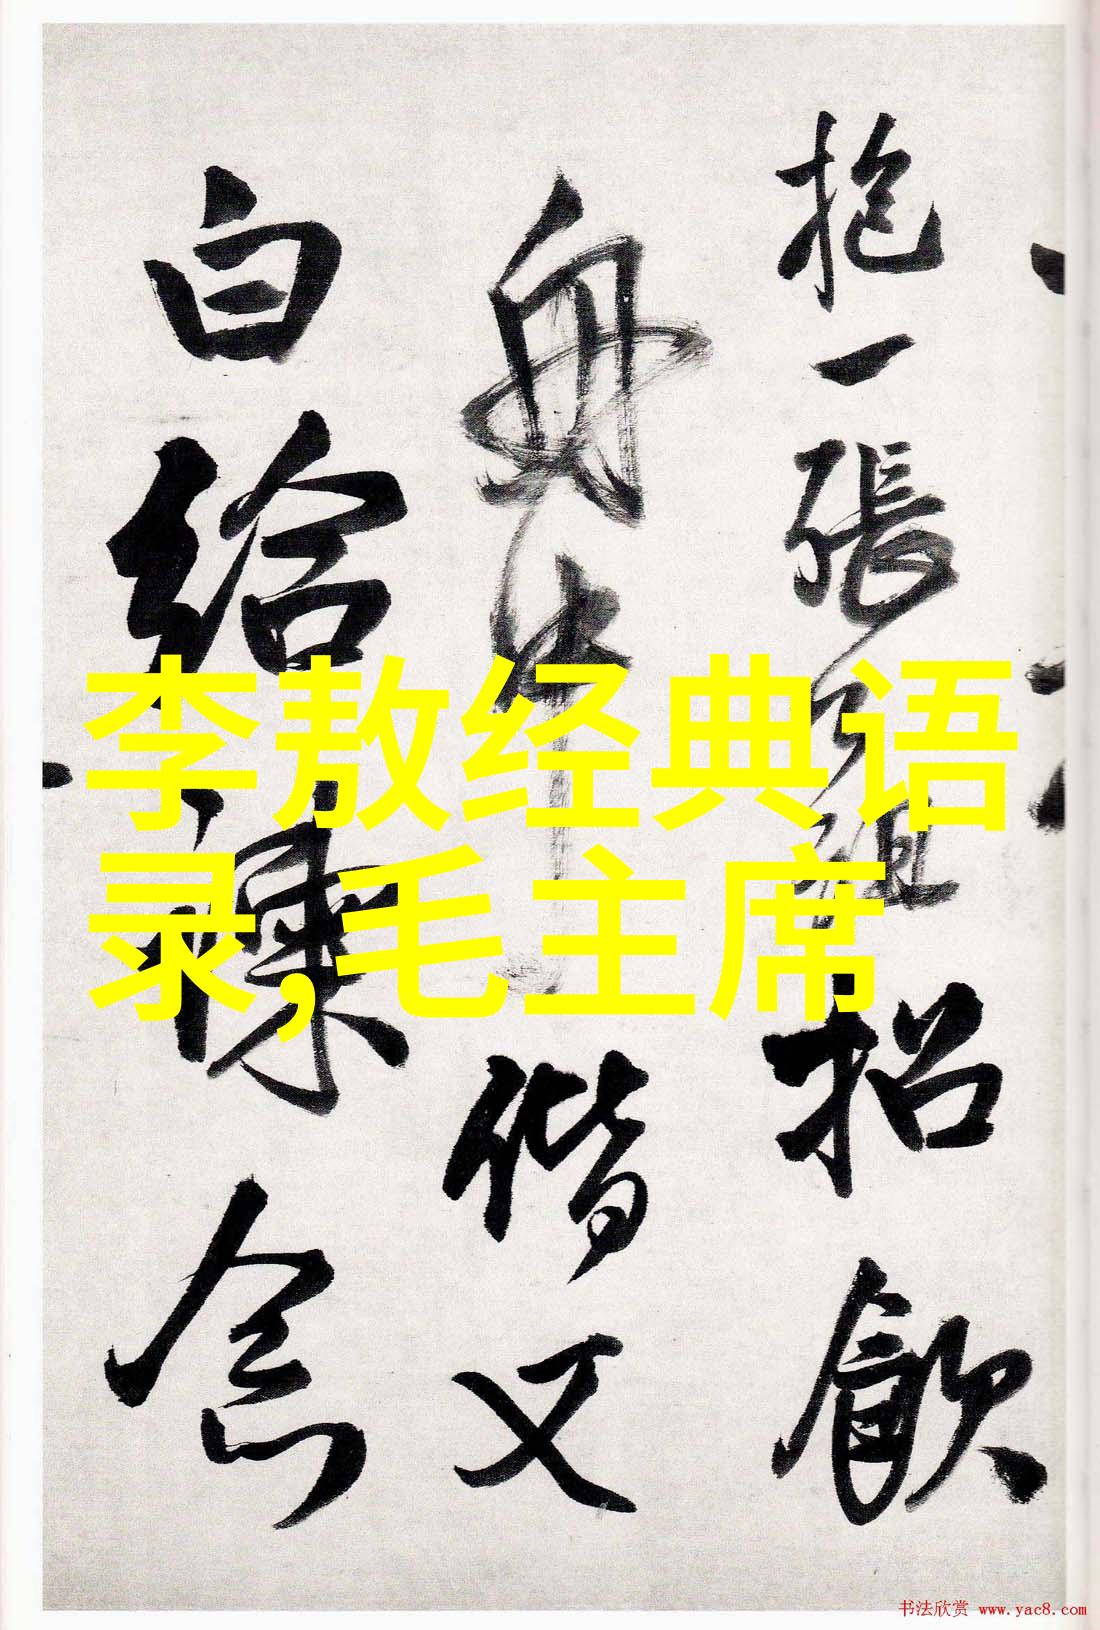 抱一張
招飲
舟中
偕又
白給諫
念
李敖经典语
录,毛主席
书法欣赏 www.yac8.com